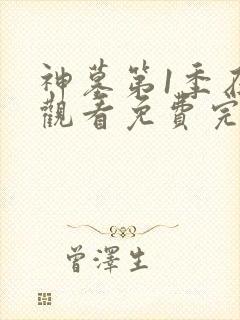 神墓第1季在
觀看免費完
曾澤生